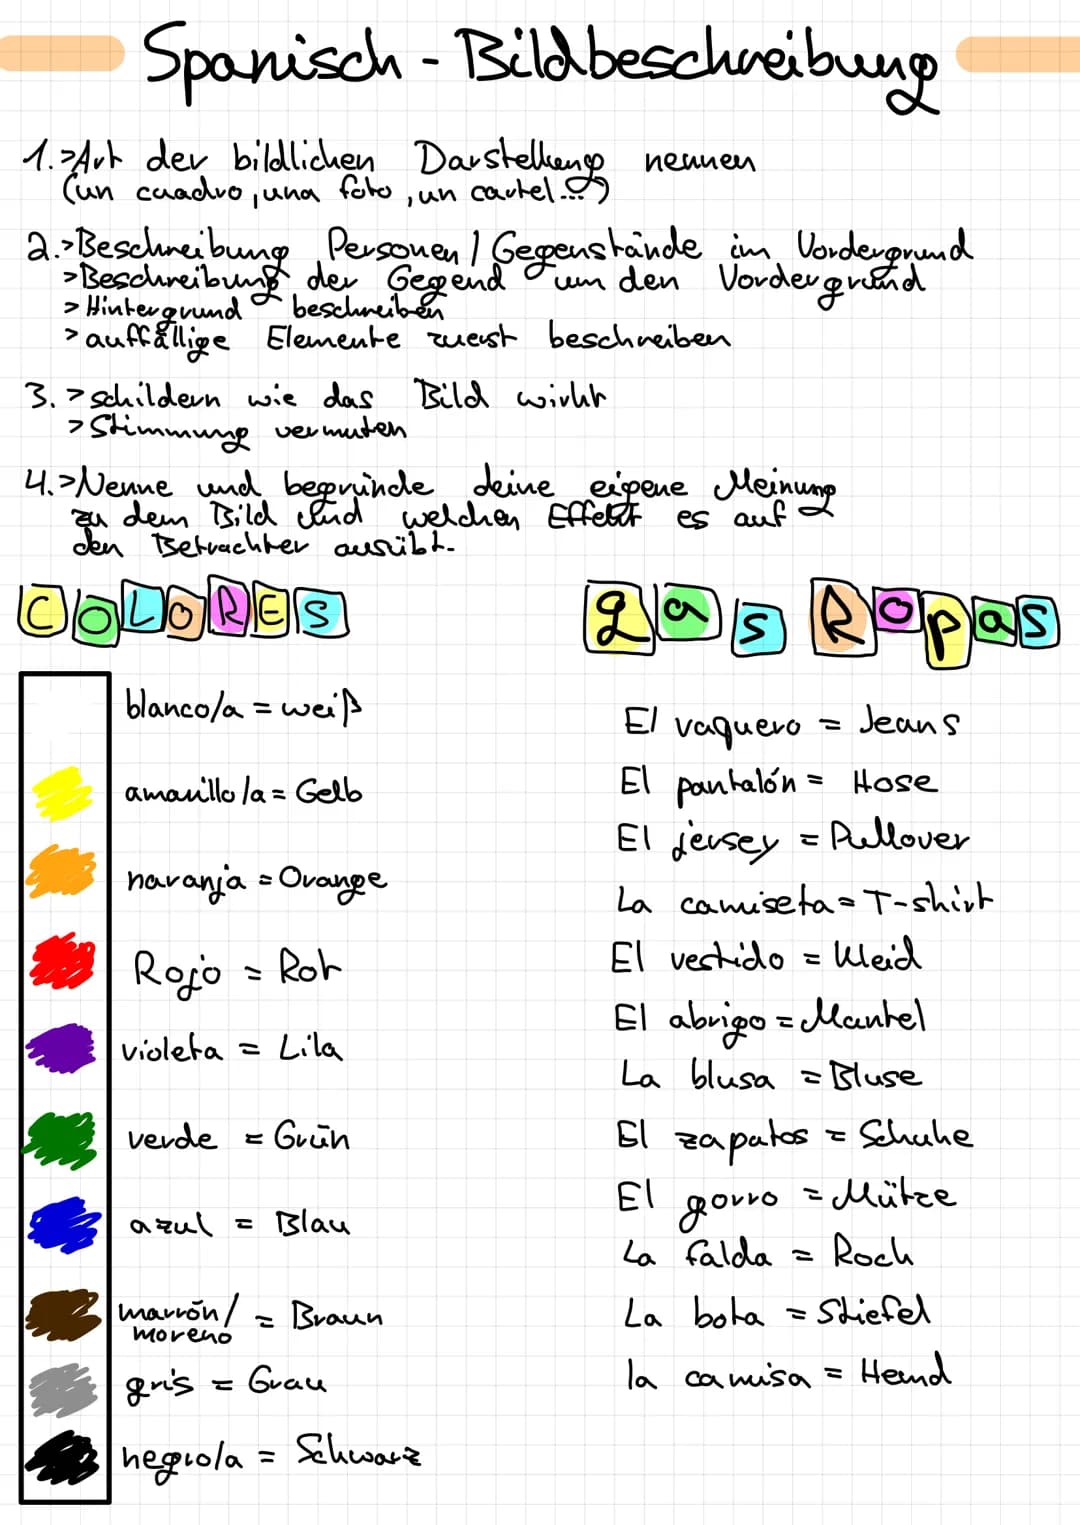 Spanisch - Bildbeschreibung
1.>Art der bildlichen Darstellung nennen
(un cuadro, una foto, un cartel...)
2.>Beschreibung Personen / Gegenstände im Vordergrund
>Beschreibung der Gegend um den Vordergrund
>Hintergrund beschreiben
>auffällige Elemente zuerst beschreiben
3.>schildern wie das Bild wirkt
>Stimmung vermuten
4.>Nenne und begründe deine eigene Meinung
zu dem Bild und welchen Effekt es auf
den Betrachter ausübt.
COLORES
blanco/a = weiß
amarillo/a = Gelb
naranja = Orange
Rojo = Rot
violeta = Lila
verde = Grün
azul = Blau
marrón/ = Braun
moreno
gris = Grau
negro/a = Schwarz
Las Ropas
El vaquero = Jeans
El pantalón = Hose
El jersey = Pullover
La camiseta = T-shirt
El vestido = Kleid
El abrigo = Mantel
La blusa = Bluse
El zapatos = Schuhe
El gorro = Mütze
La falda = Rock
La bota = Stiefel
la camisa = Hemd